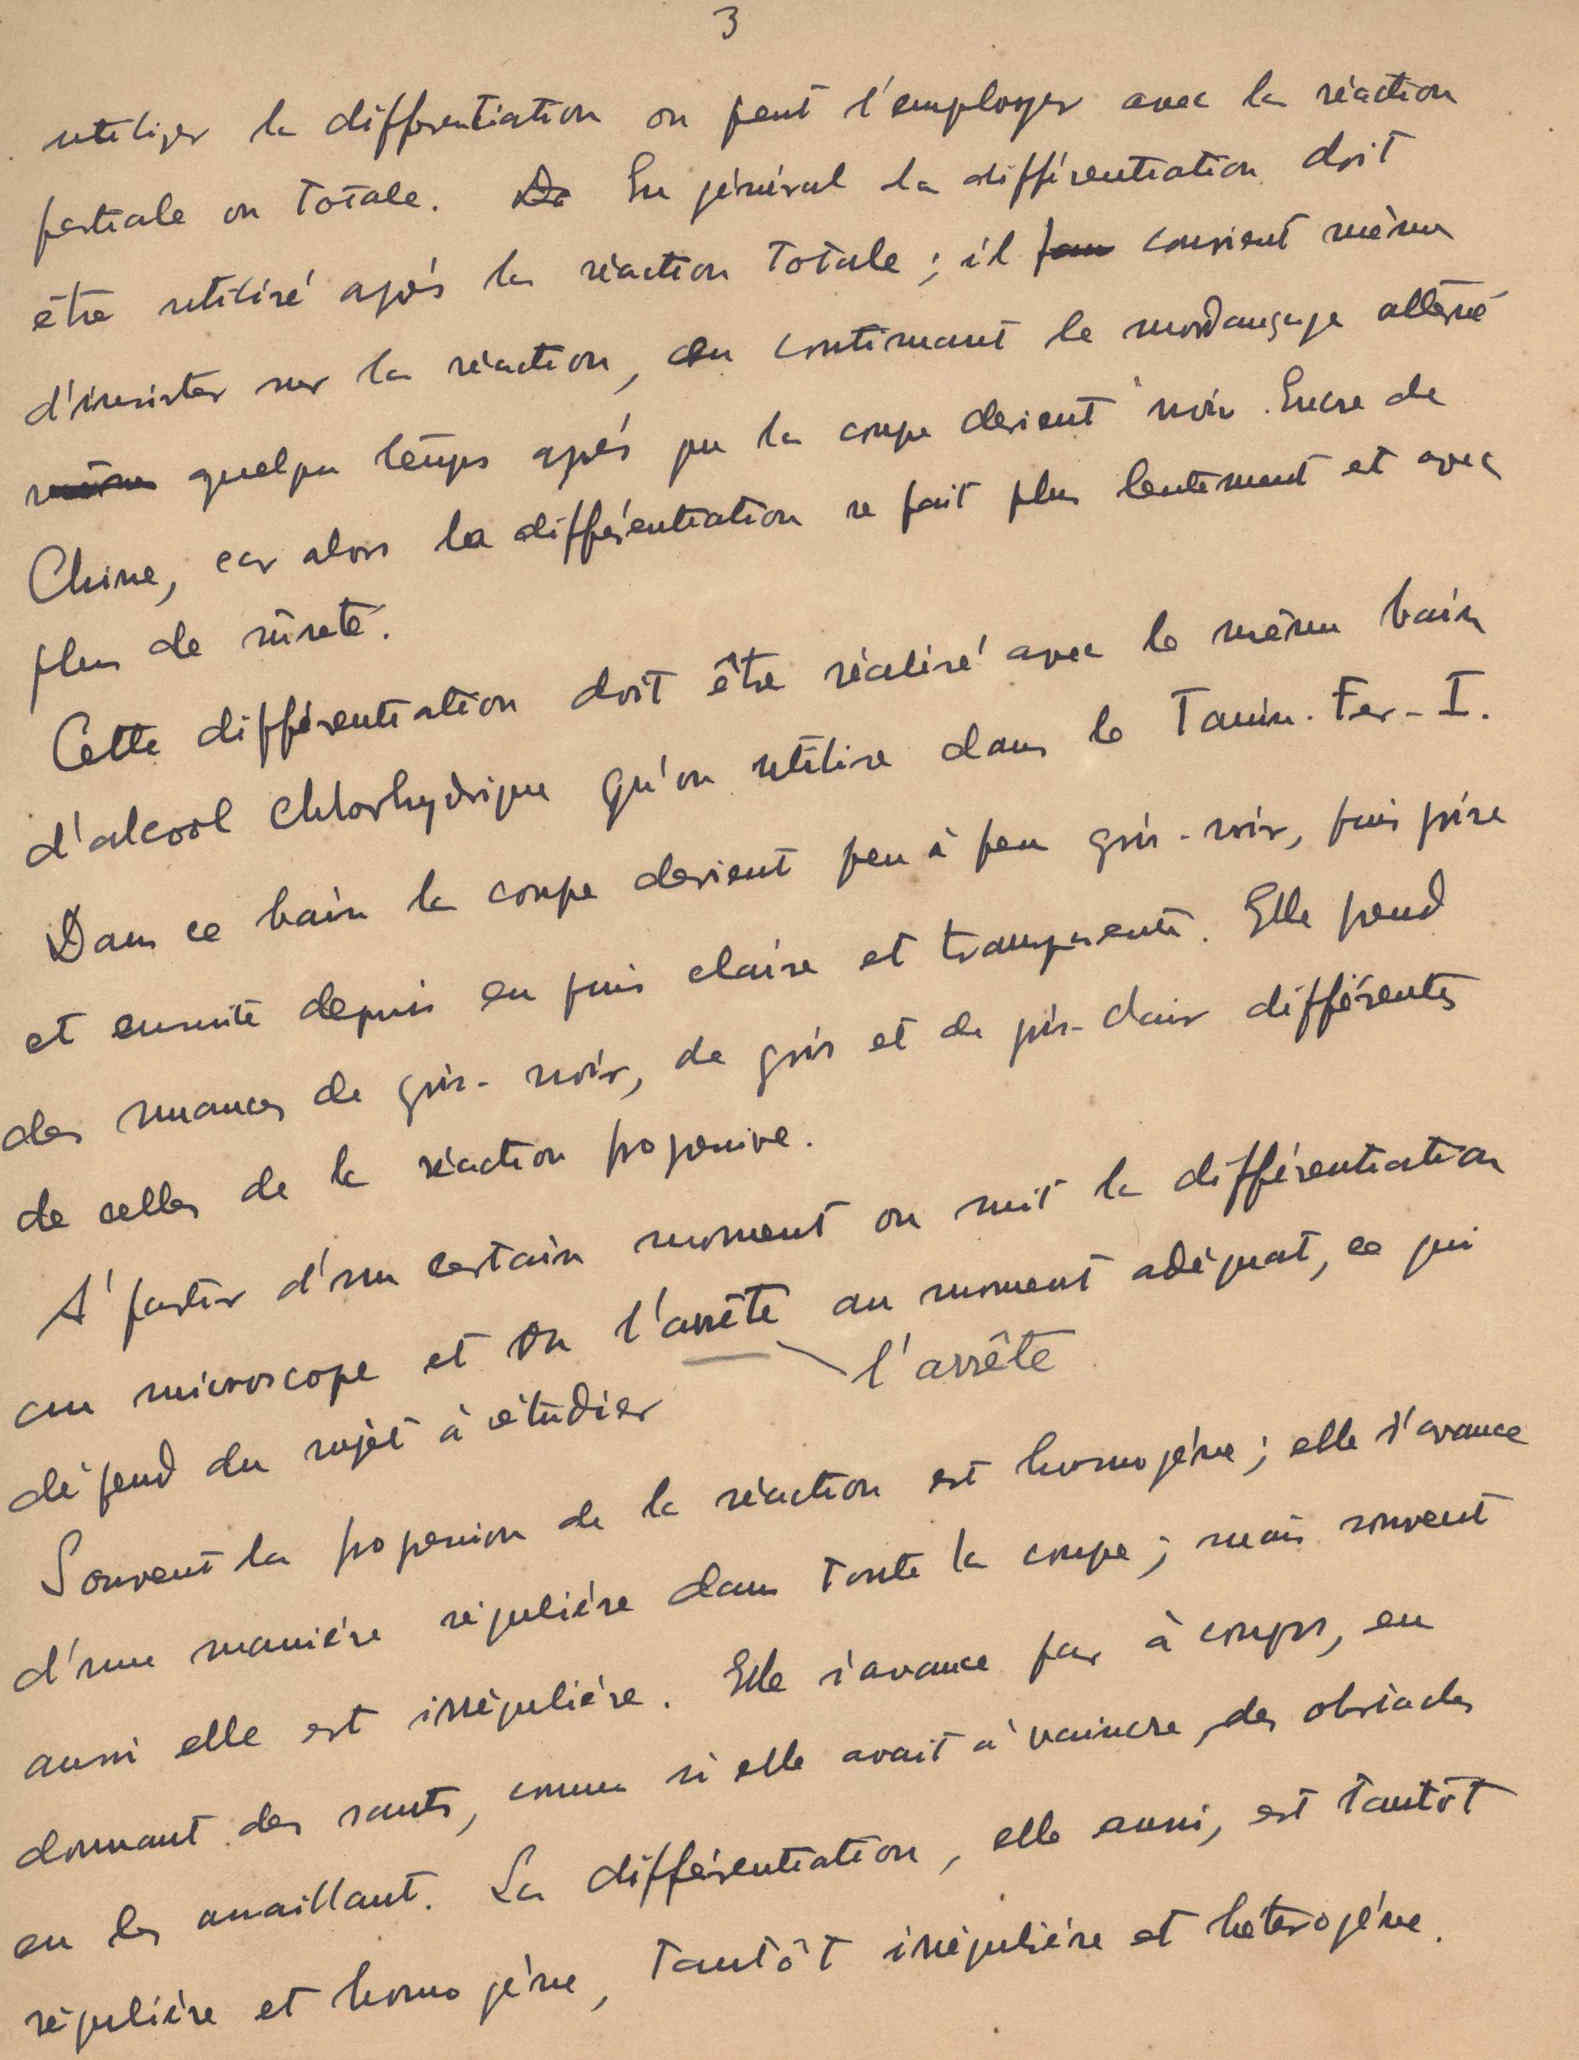 3
utiliser la différentiation on peut l'employer avec la réaction
partiale ou totale. De En général la différentiation doit
être utilisé après la réaction totale ; il fau convient même
d'insister sur la réaction, en continuant le mordançage alterné
même quelque temps après que la coupe devient noir Encre de
Chine, car alors la différentiation se fait plus lentement et avec
plus de sûreté.
Cette différentiation doit être réalisé avec le même bain
d'alcool chlorhydrique qu'on utilise dans le Tanin-Fer-I.
Dans ce bain la coupe devient peu à peu gris-noir, puis grise
et ensuite depuis en puis claire et transparente. Elle prend
des nuances de gris-noir, de gris et de gris-clair différentes
de celles de la réaction progressive.
A' partir d'un certain moment on suit la différentiation
au microscope et on l'arrête au moment adéquat, ce qui
l'arrête
dépend du sujet à étudier
Souvent la progression de la réaction est homogène ; elle s'avance
d'une manière régulière dans toute la coupe ; mais souvent
aussi elle est irrégulière. Elle s'avance par à coups, en
donnant des sauts, comme si elle avait à vaincre des obstacles
en les assaillant. La différentiation, elle aussi, est tantôt
régulière et homogène, tantôt irrégulière et hétérogène.